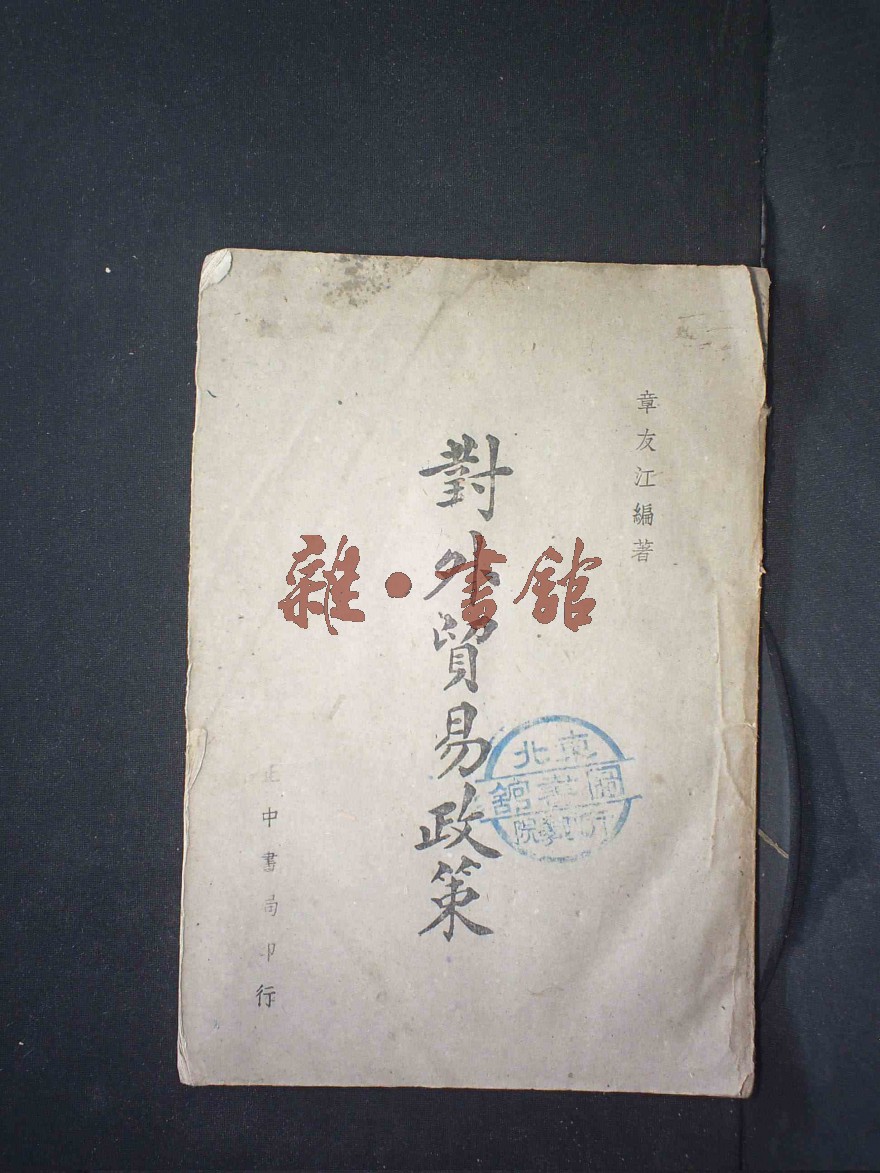 章友江編著
對外貿易政策
正中書局印行
雜·書館
東北
圖書館
院